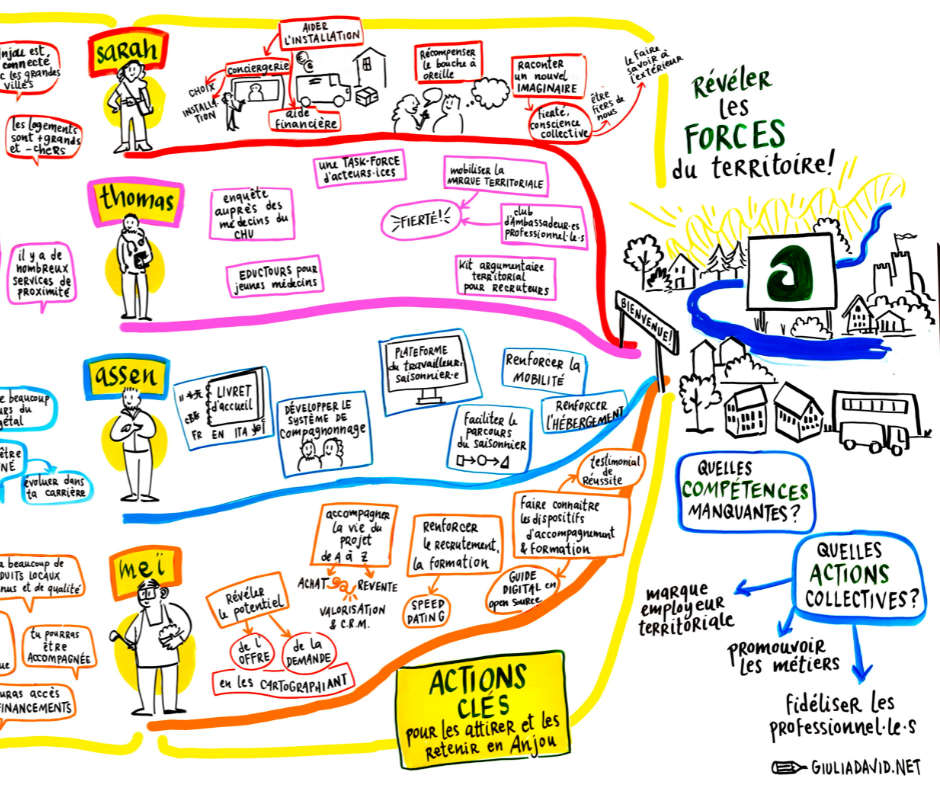 Anjou est,
connecté
les grandes
villes
les logements
sont + grands
et - chers
sarah
AIDER
L'INSTALLATION
conciergerie
CHOIX
INSTALLA
TION
aide
financière
Récompenser
le bouche à
oreille
raconter
un nouvel
IMAGINAIRE
fierté,
conscience
collective
être
fiers de
nous
le faire
savoir à
l'extérieur
Révéler
les
FORCES
du territoire!
a
thomas
il y a de
nombreux
services de
proximité
enquête
auprès des
médecins du
CHU
une TASK-FORCE
d'acteurs·ices
mobiliser la
MARQUE TERRITORIALE
FIERTÉ!
club
d'Ambassadeur·es
professionnel·le·s
EDUCTOURS pour
jeunes médecins
Kit argumentaire
territorial
pour recruteurs
BIENVENUE!
assen
beaucoup
du
être
évoluer dans
ta carrière
LIVRET
d'accueil
FR EN ITA
DÉVELOPPER LE
SYSTÈME DE
compagnonnage
PLATEFORME
du travailleur·
saisonnier·e
Renforcer la
MOBILITÉ
Renforcer
L'HÉBERGEMENT
Faciliter le
parcours
du saisonnier
meï
a beaucoup de
DUITS LOCAUX
nus et de qualité
tu pourras
être
ACCOMPAGNÉE
uras accès
FINANCEMENTS
Révéler
le potentiel
de l'
OFFRE
de la
DEMANDE
en les CARTOGRAPHIANT
accompagner
la vie du
projet
de A à Z
ACHAT
REVENTE
VALORISATION
& C.R.M.
renforcer
le recrutement,
la formation
SPEED
DATING
testimonial
de
Réussite
Faire connaître
les dispositifs
d'accompagnement
& formation
GUIDE
DIGITAL en
open source
ACTIONS
CLÉS
pour les attirer et les
retenir en Anjou
QUELLES
COMPÉTENCES
MANQUANTES?
QUELLES
ACTIONS
COLLECTIVES?
marque
employeur
territoriale
promouvoir
les métiers
fidéliser les
professionnel·le·s
GIULIADAVID.NET